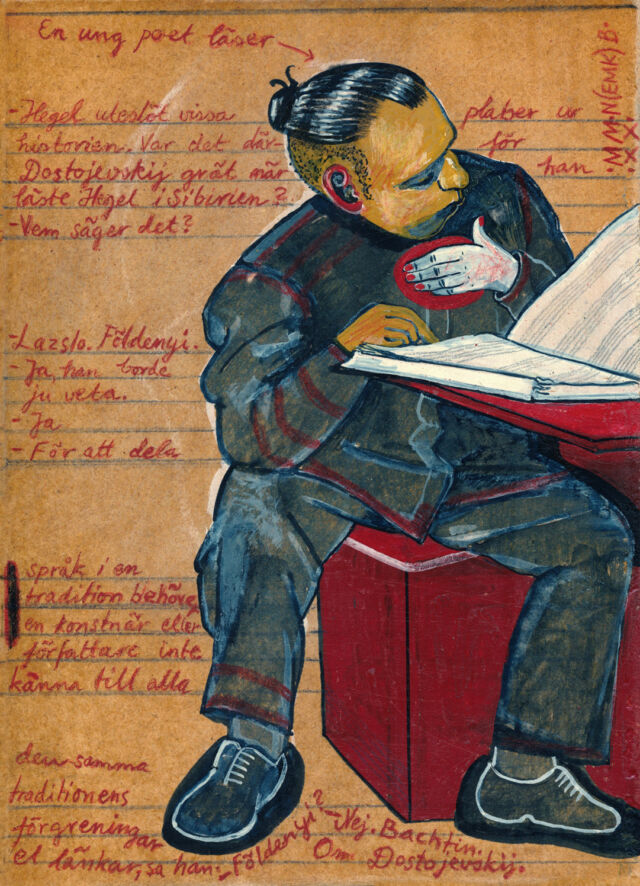 En ung poet läser
-Hegel uteslöt vissa platser ur
historien. Var det därför
Dostojevskij grät när han
läste Hegel i Sibirien?
-Vem säger det?
-Lazslo. Földenyi.
-Ja, han borde
ju veta.
-Ja
-För att dela
språk i en
tradition behöver
en konstnär eller
författare inte
känna till alla
den samma
traditionens
förgreningar
el länkar, sa han.
-Földenyi?
-Nej. Bachtin.
Om Dostojevskij.
M MAN(EMK) B.